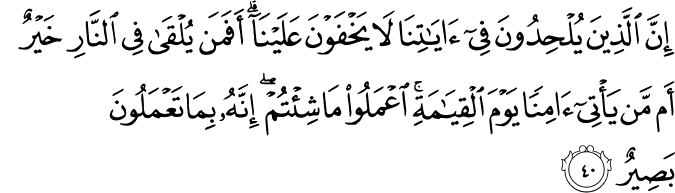 إِنَّ ٱلَّذِينَ يُلۡحِدُونَ فِيٓ ءَايَٰتِنَا لَا يَخۡفَوۡنَ عَلَيۡنَآۗ أَفَمَن يُلۡقَىٰ فِي ٱلنَّارِ خَيۡرٌ
أَم مَّن يَأۡتِيٓ ءَامِنٗا يَوۡمَ ٱلۡقِيَٰمَةِۚ ٱعۡمَلُواْ مَا شِئۡتُمۡۖ إِنَّهُۥ بِمَا تَعۡمَلُونَ
بَصِيرٌ ٤٠